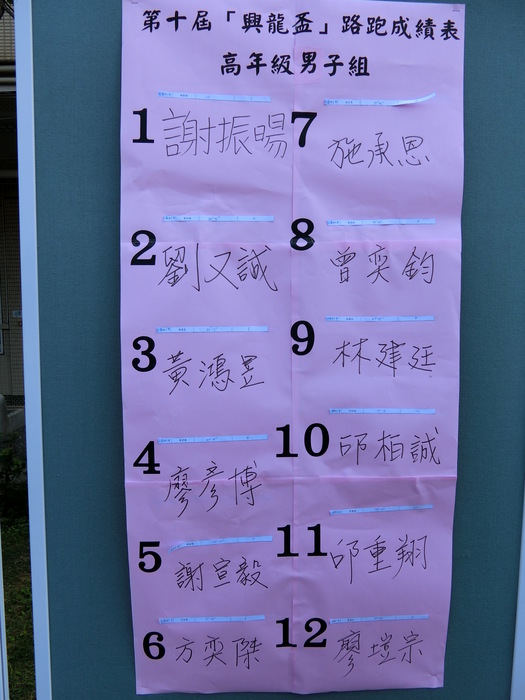 第十屆「興龍盃」路跑成績表
高年級男子組
1 謝振暘
2 劉又誠
3 黃鴻昱
4 廖彥博
5 謝宣毅
6 方奕傑
7 施承恩
8 曾奕鈞
9 林建廷
10 邱柏誠
11 邱重翔
12 廖塏宗